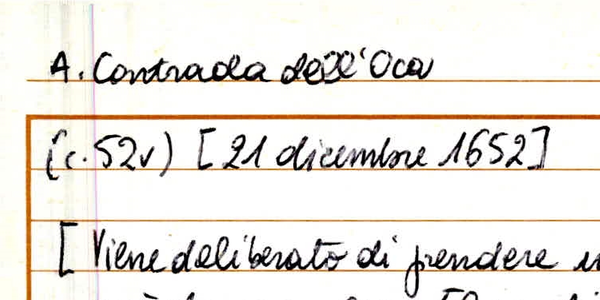 A. Contrada dell'Oca
(c. 52v) [21 dicembre 1652]
[Viene deliberato di prendere